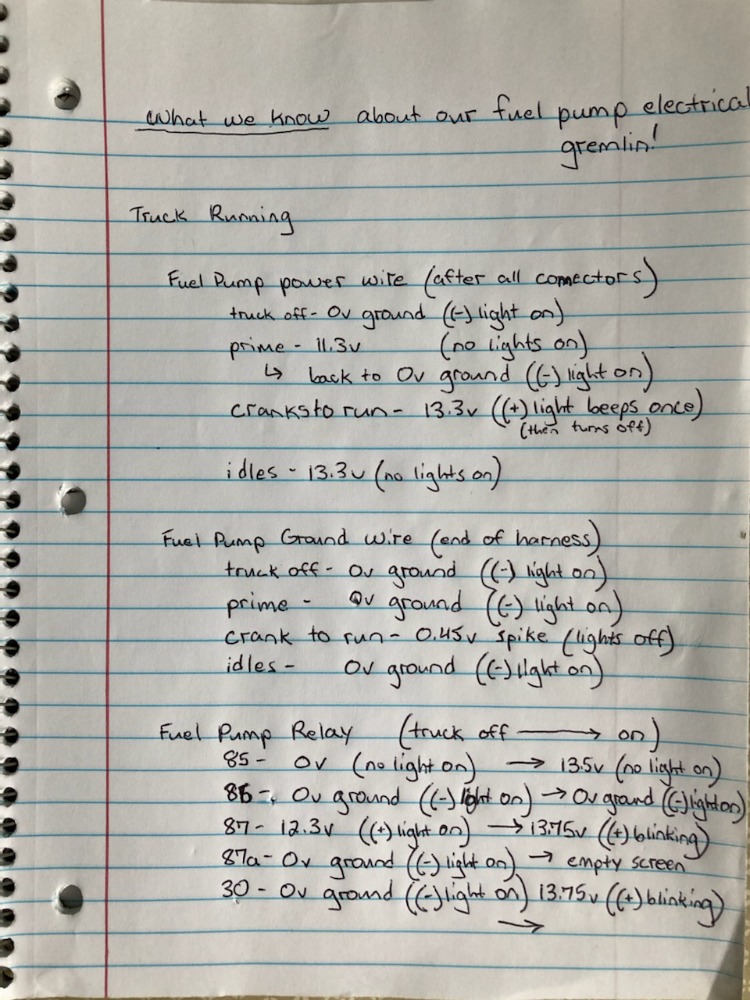 What we know about our fuel pump electrical
gremlin!
Truck Running
Fuel Pump power wire (after all connectors)
truck off - 0v ground ((-) light on)
prime - 11.3v (no lights on)
↳ back to 0v ground ((-) light on)
cranks to run - 13.3v ((+) light beeps once)
(then turns off)
idles - 13.3v (no lights on)
Fuel Pump Ground wire (end of harness)
truck off - 0v ground ((-) light on)
prime - 0v ground ((-) light on)
crank to run - 0.45v spike (lights off)
idles - 0v ground ((-) light on)
Fuel Pump Relay (truck off → on)
85 - 0v (no light on) → 13.5v (no light on)
86 - 0v ground ((-) light on) → 0v ground ((-) light on)
87 - 12.3v ((+) light on) → 13.75v ((+) blinking)
87a - 0v ground ((-) light on) → empty screen
30 - 0v ground ((-) light on) 13.75v ((+) blinking)
→